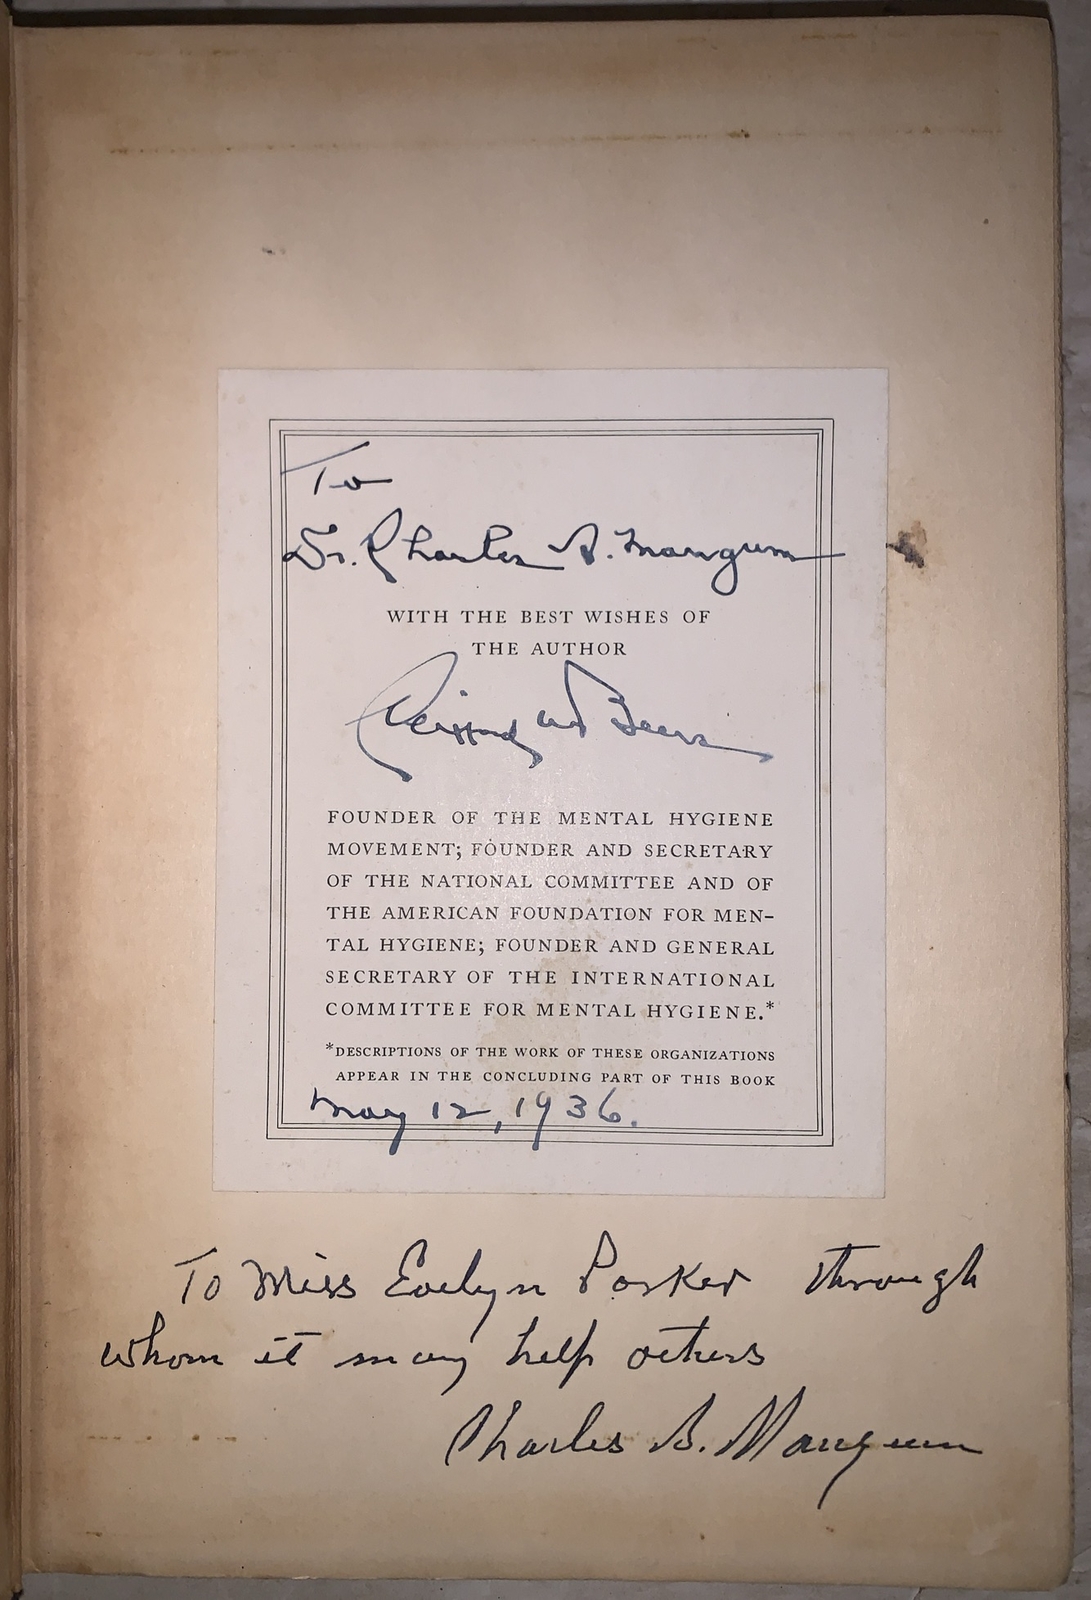 To
Dr. Charles S. Mangum
WITH THE BEST WISHES OF
THE AUTHOR
Clifford W Beers
FOUNDER OF THE MENTAL HYGIENE
MOVEMENT; FOUNDER AND SECRETARY
OF THE NATIONAL COMMITTEE AND OF
THE AMERICAN FOUNDATION FOR MEN-
TAL HYGIENE; FOUNDER AND GENERAL
SECRETARY OF THE INTERNATIONAL
COMMITTEE FOR MENTAL HYGIENE.*
*DESCRIPTIONS OF THE WORK OF THESE ORGANIZATIONS
APPEAR IN THE CONCLUDING PART OF THIS BOOK
May 12, 1936.
To Miss Evelyn Parker through
whom it may help others
Charles S. Mangum